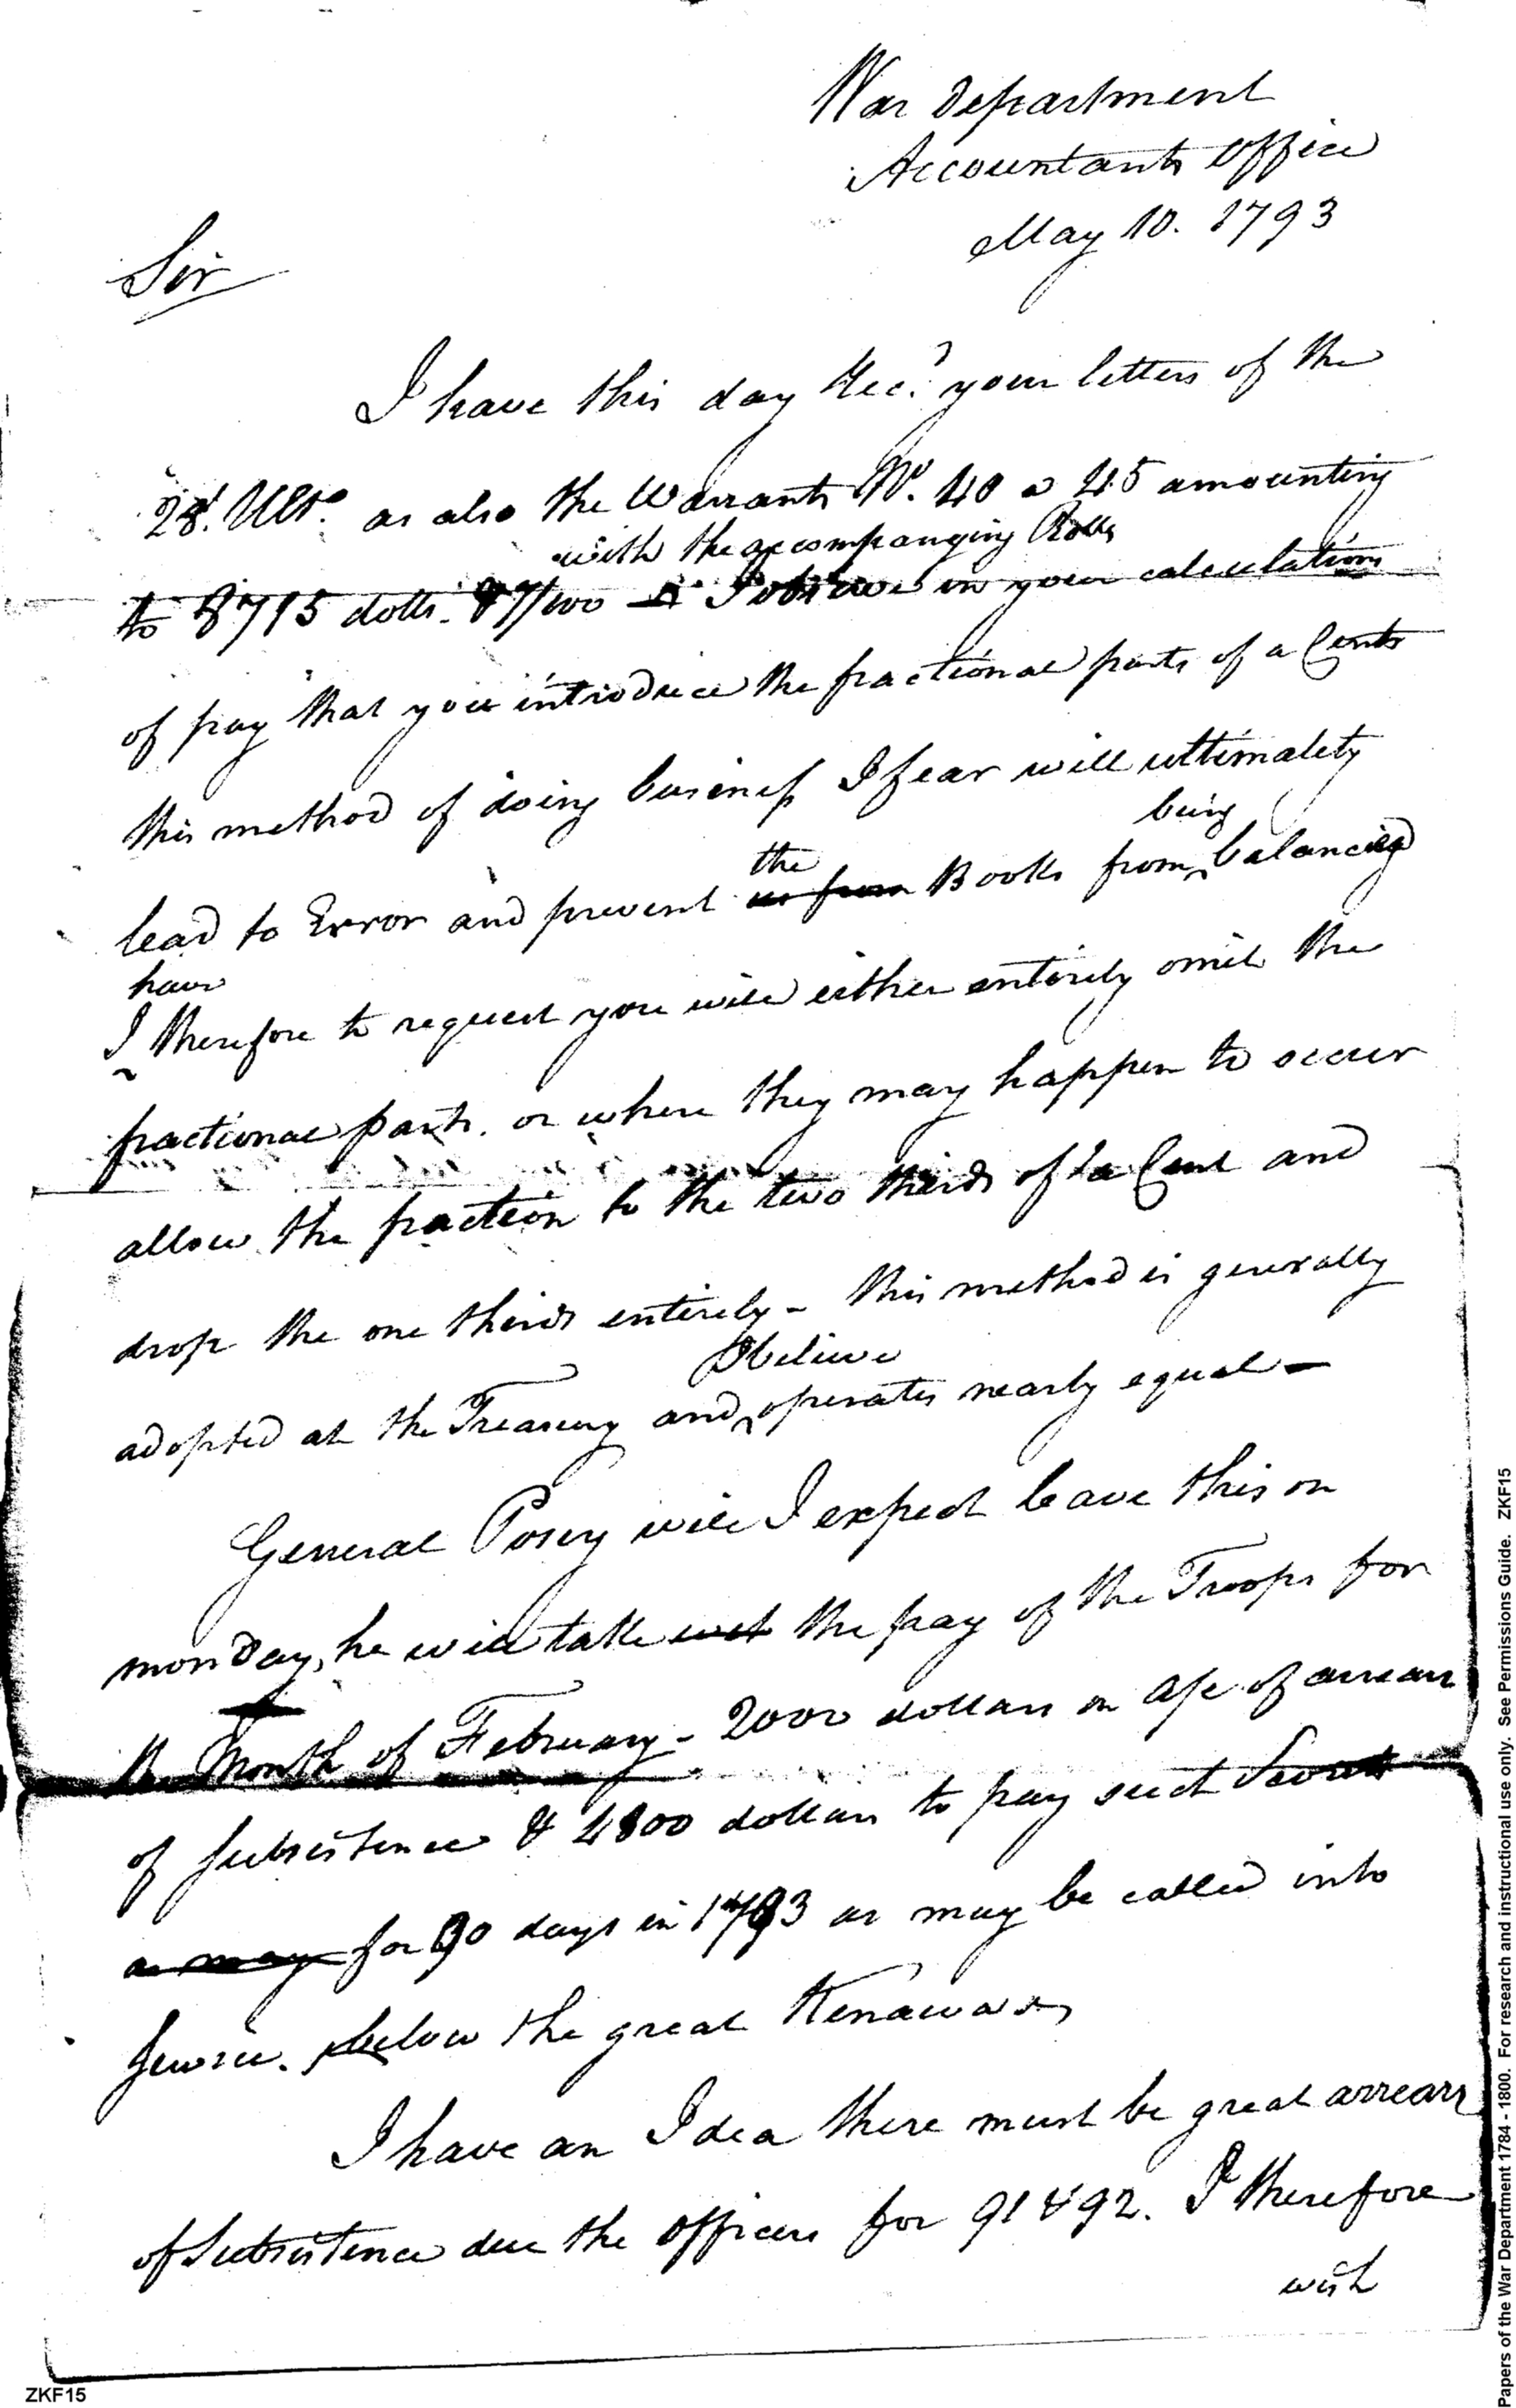 War Department
Accountants Office
May 10. 1793
Sir
I have this day Recd. your letters of the
28. Ulto. as also the Warrants No. 40 a 45 amounting
with the accompanying Rolls
to 8715 dolls. 87/100 I observe in your calculations
of pay that you introduce the fractional parts of a Cents
this method of doing business I fear will ultimately
being
the
lead to Error and prevent us from Books from balancing
have
I therefore to request you will either entirely omit the
fractional parts. or where they may happen to occur
allow the fraction to the two thirds of a Cent and
drop the one thirds entirely - this method is generally
I believe
adopted at the Treasury and operates nearly equal -
General Posey will I expect leave this on
monday, he will take out the pay of the Troops for
the Month of February - 2000 dollars on a/c of arrears
of subsistence & 4800 dollars to pay such Scouts
as may for 90 days in 1793 as may be called into
Service. below the great Kenawas,
I have an Idea there must be great arrears
of Subsistence due the officers for 91 & 92. I therefore
wish
ZKF15
Papers of the War Department 1784 - 1800. For research and instructional use only. See Permissions Guide. ZKF15